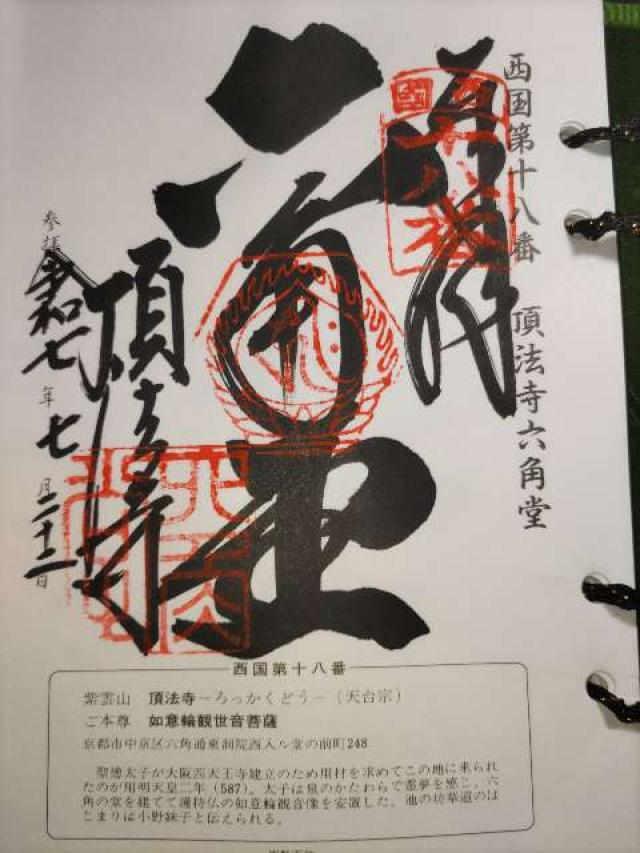 西国第十八番 頂法寺六角堂
奉拝
六角堂
頂法寺
参拝 令和七年七月二十二日
西国第十八番
紫雲山 頂法寺－ろっかくどう－（天台宗）
ご本尊 如意輪観世音菩薩
京都市中京区六角通東洞院西入ル堂の前町248
聖徳太子が大阪四天王寺建立のため用材を求めてこの地に来られ
たのが用明天皇二年（587）。太子は泉のかたわらで霊夢を感じ、六
角の堂を建てて護持仏の如意輪観音像を安置した。池の坊華道のは
じまりは小野妹子と伝えられる。